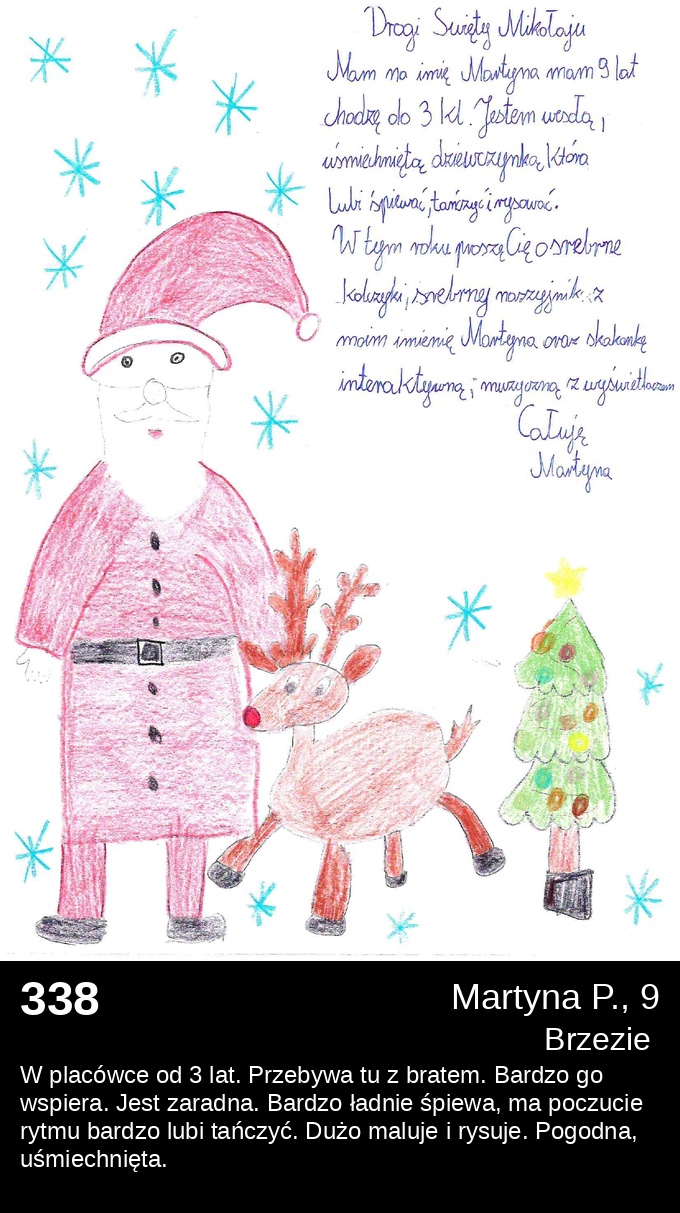 Drogi Święty Mikołaju
Mam na imię Martyna mam 9 lat
chodzę do 3 kl. Jestem wesołą,
uśmiechniętą dziewczynką, która
lubi śpiewać, tańczyć i rysować.
W tym roku proszę Cię o srebrne
kolczyki, srebrny naszyjnik z
moim imienię Martyna oraz skakankę
interaktywną, muzyczną z wyświetlaczem
Całuję
Martyna
338
Martyna P., 9
Brzezie
W placówce od 3 lat. Przebywa tu z bratem. Bardzo go
wspiera. Jest zaradna. Bardzo ładnie śpiewa, ma poczucie
rytmu bardzo lubi tańczyć. Dużo maluje i rysuje. Pogodna,
uśmiechnięta.